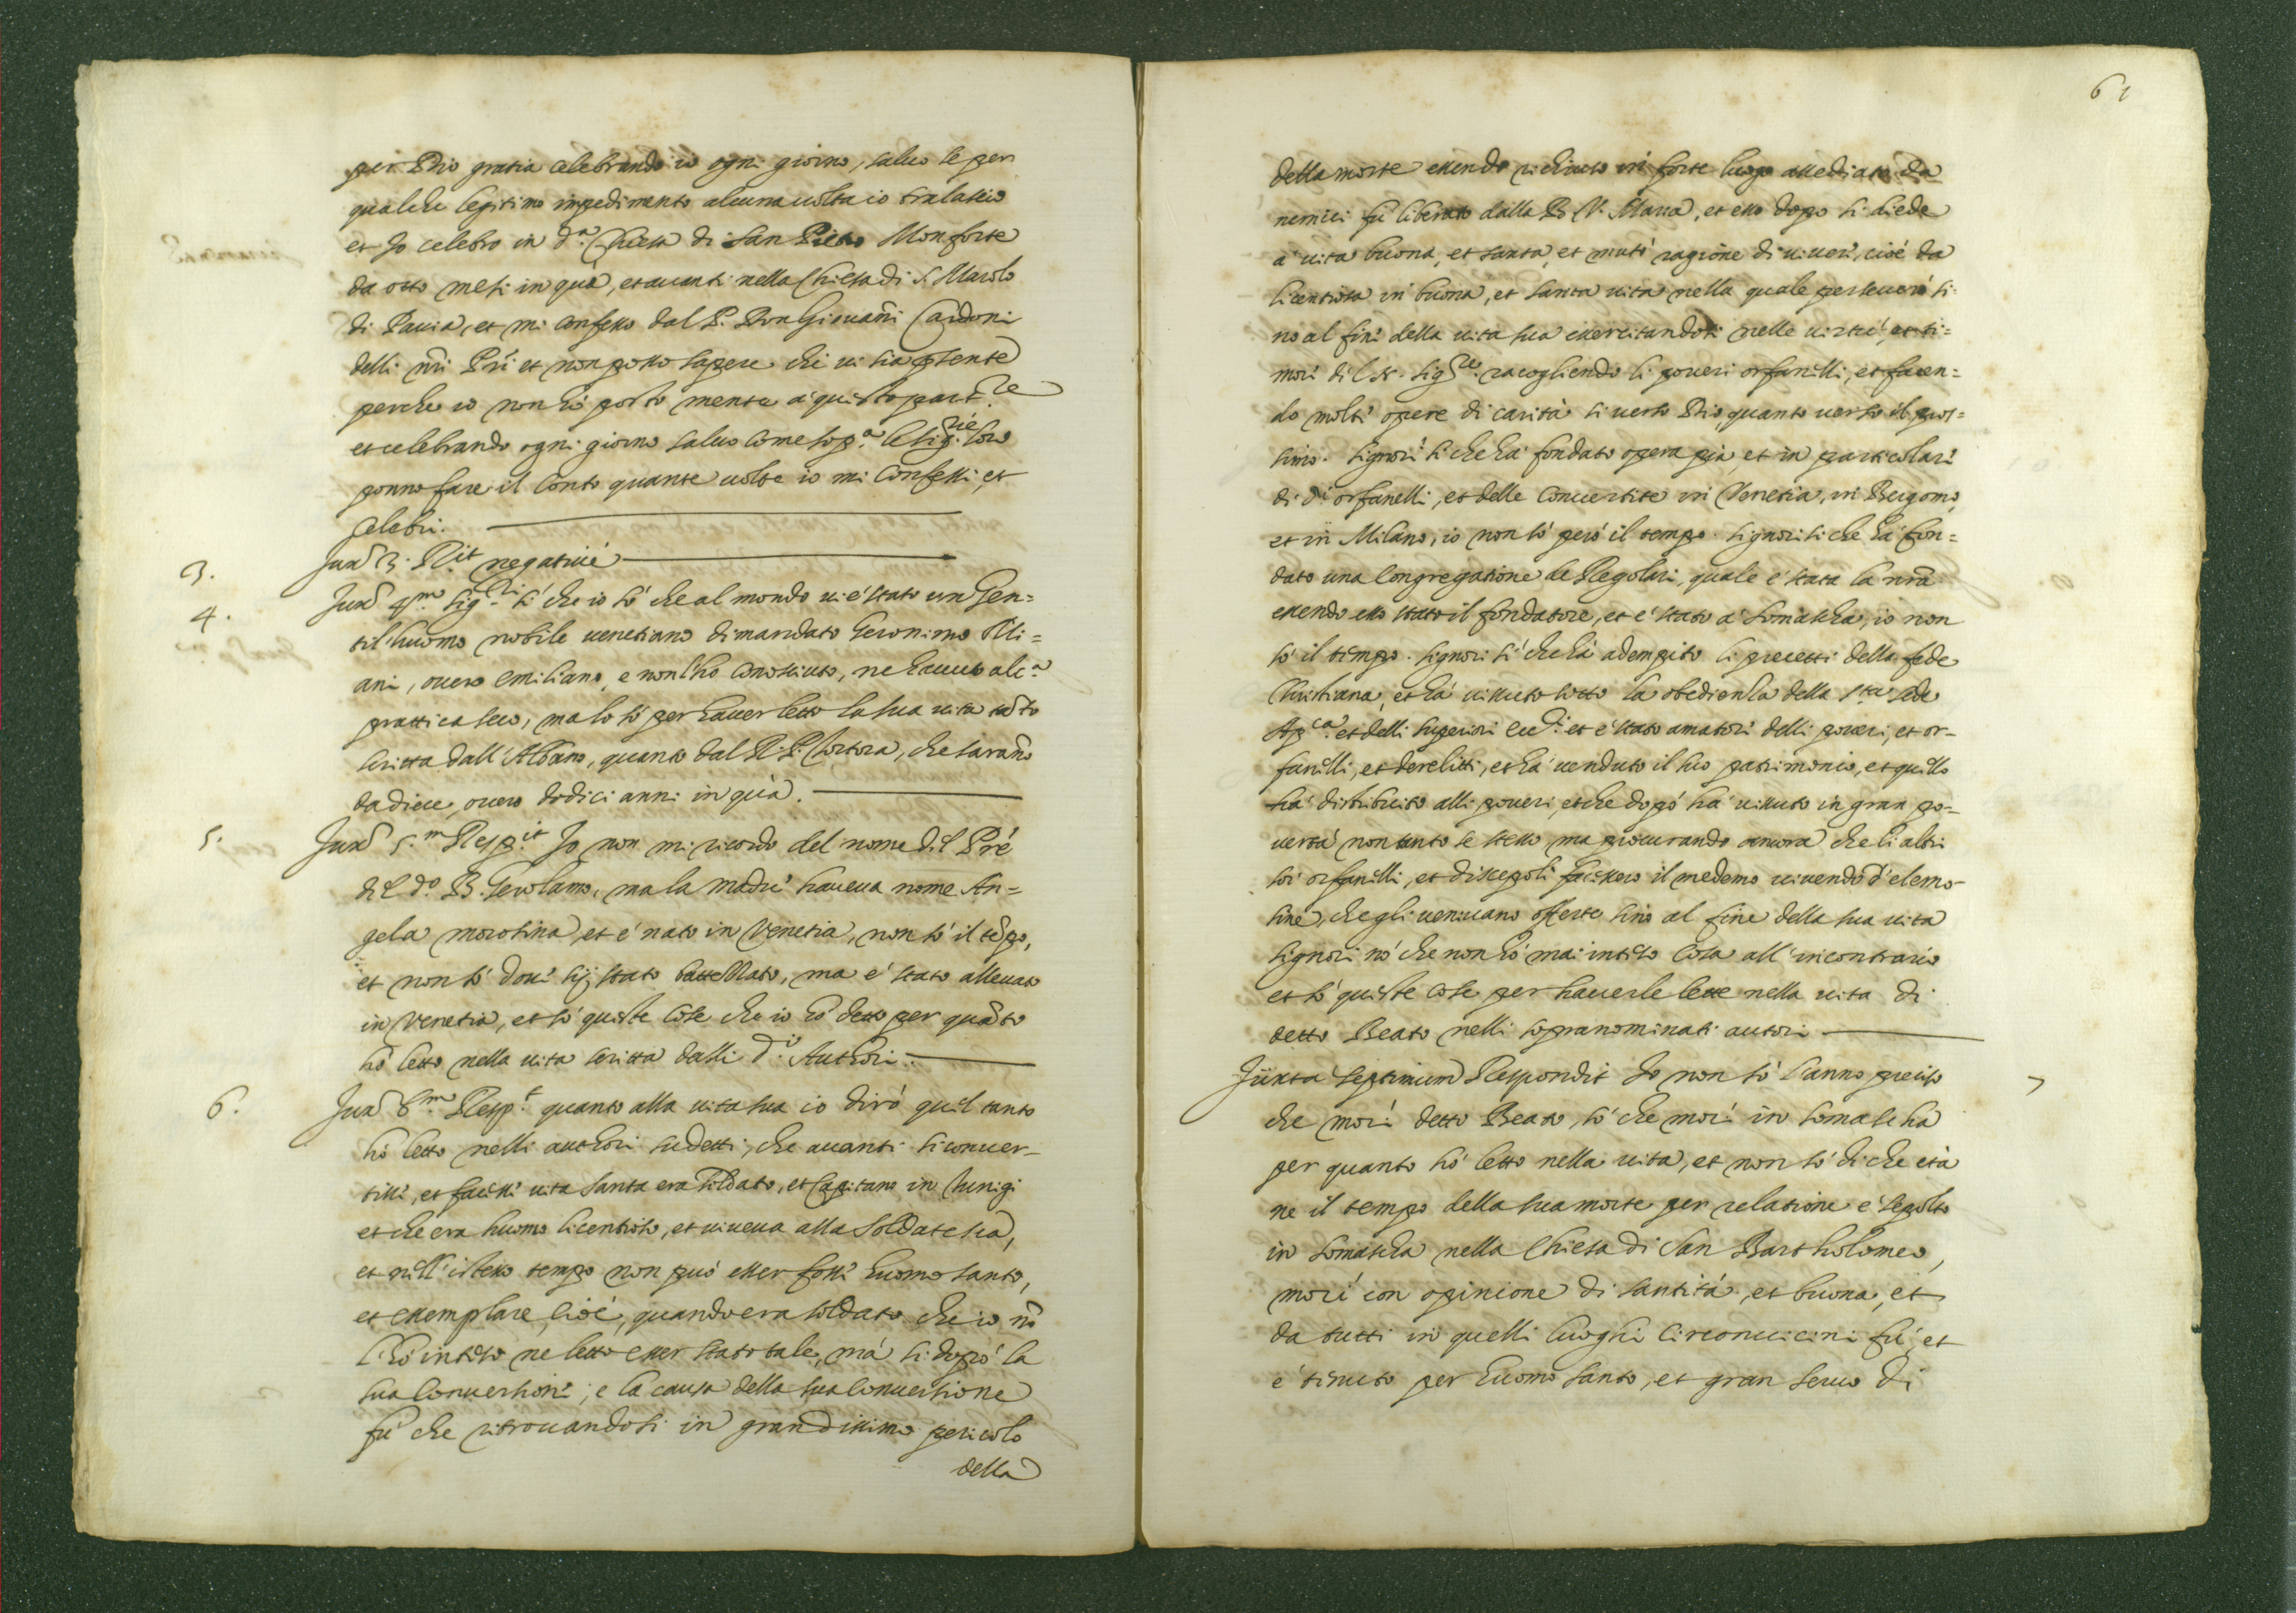 per Dio gratia celebrando io ogni giorno, saluo se per
qualche legitimo impedimento alcuna uolta io tralascio
et Io celebro in d.ª Chiesa di San Pietro Monforte
da otto mesi in quà, et auanti nella Chiesa di S. Maiolo
di Pauia, et mi confesso dal P. Don Giouañi Cardoni
delli nr̃i Pr̃i et non posso sapere chi ui sia pñte
perche io non hò posto mente à questo part.re
et celebrando ogni giorno saluo come sop.ª le Sig.rie loro
ponno fare il conto quante uolte io mi confessi, et
celebri.
3. Juxª 3. R.it negatiuè
4. Juxª 4.m Sig.ri sì che io sò che al mondo ui è stato un Gen=
til'huomo nobile uenetiano dimandato Geronimo Mi=
ani, ouero Emiliano, e non l'ho conosciuto, ne hauuto alc.ª
prattica seco, ma lo sò per hauer letto la sua uita tãto
scritta dall'Albano, quanto dal R. P. Tortora, che sarañο
da diece, ouero dodici anni in quà.
5. Juxª 5.m Resp.it Io non mi ricordo del nome del Prẽ
del d.º B. Gerolamo, ma la madre haueua nome An=
gela morosina, et è nato in Venetia, non sò il tẽpo,
et non sò doue sij stato battezzato, ma è stato alleuato
in Venetia, et sò queste cose che io hò detto per quãto
hò letto nella uita scritta dalli d.i Authori.
6. Juxª 6.m Resp.t quanto alla uita sua io dirò quel tanto
hò letto nelli authori sudetti, che auanti si conuer-
tisse, et facesse uita santa era soldato, et Capitano in
et che era huomo licentioso, et uiueua alla soldatesca,
et nell'istesso tempo non può esser fosse huomo santo,
et essemplare, cioè, quando era soldato che io nõ
l'hò inteso ne letto esser stato tale, mà si dopò la
sua conuersione, e la causa della sua conuersione
fù che ritrouandosi in grandissimo pericolo
della
61
della morte essendo richiuso in forte luogo assediato da
nemici fù liberato dalla B. V. Maria, et esso dopo si diede
à uita buona, et santa, et mutò ragione di uiuere, cioè da
licentiosa in buona, et santa uita nella quale perseuerò si-
no al fine della uita sua essercitandosi nelle uirtù, et ti=
more del N. Sig.re racogliendo li poueri orfanelli, et facen=
do molte opere di carità si uerso Dio, quanto uerso il pros=
simo. Signori si che hà fondato opera pia, et in particolare
di d.i orfanelli, et delle conuertite in Venetia, in Bergomo,
et in Milano, io non sò però il tempo. Signori si che hà fon=
dato una Congregatione de Regolari, quale è stata la nr̃a
essendo esso stato il fondatore, et è stato à Somascha, io non
sò il tempo. Signori si che hà adempito li precetti della fede
Christiana, et hà uissuto sotto la obedienza della S.ta Sede
Ap.ca et delli superiori ecc.ci et è stato amatore delli poueri, et or-
fanelli, et derelitti, et hà uenduto il suo patrimonio, et quello
hà distribuito alli poueri, et che dopò hà uissuto in gran po-
uertà non tanto se stesso ma procurando ancora che li altri
soi orfanelli, et discepoli facessero il medemo uiuendo d'elemo-
sine, che gli ueniuano offerte sino al fine della sua uita
Signori nò che non hò mai inteso cosa all'incontrario
et sò queste cose per hauerle lette nella uita di
detto Beato nelli sopranominati autori
Juxta septimum Respondit Io non sò l'anno preciso 7
che morì detto Beato, sò che morì in Somascha
per quanto hò letto nella uita, et non sò di che età
ne il tempo della sua morte per relatione è sepolto
in Somascha nella Chiesa di San Bartholomeo,
morì con opinione di santità, et buona, et
da tutti in quelli luoghi circonuicini fù, et
è tenuto per huomo santo, et gran seruo di